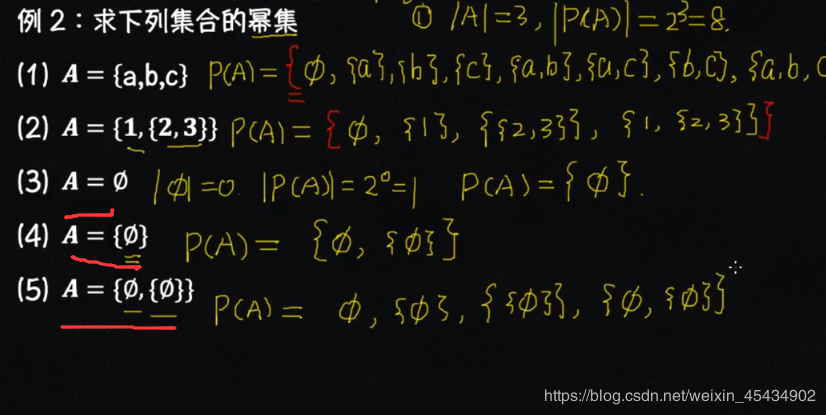 例 2：求下列集合的幂集 ① |A|=3, |P(A)|=2³=8.
(1) A = {a,b,c} P(A)= {ϕ, {a}, {b}, {c}, {a,b}, {a,c}, {b,c}, {a,b,c
(2) A = {1,{2,3}} P(A)= {ϕ, {1}, {{2,3}}, {1, {2,3}}}
(3) A = ∅ |ϕ|=0. |P(A)|=2⁰=1 P(A)={ϕ}.
(4) A = {∅} P(A)= {ϕ, {ϕ}}
(5) A = {∅,{∅}} P(A)= ϕ, {ϕ}, {{ϕ}}, {ϕ, {ϕ}}
https://blog.csdn.net/weixin_45434902